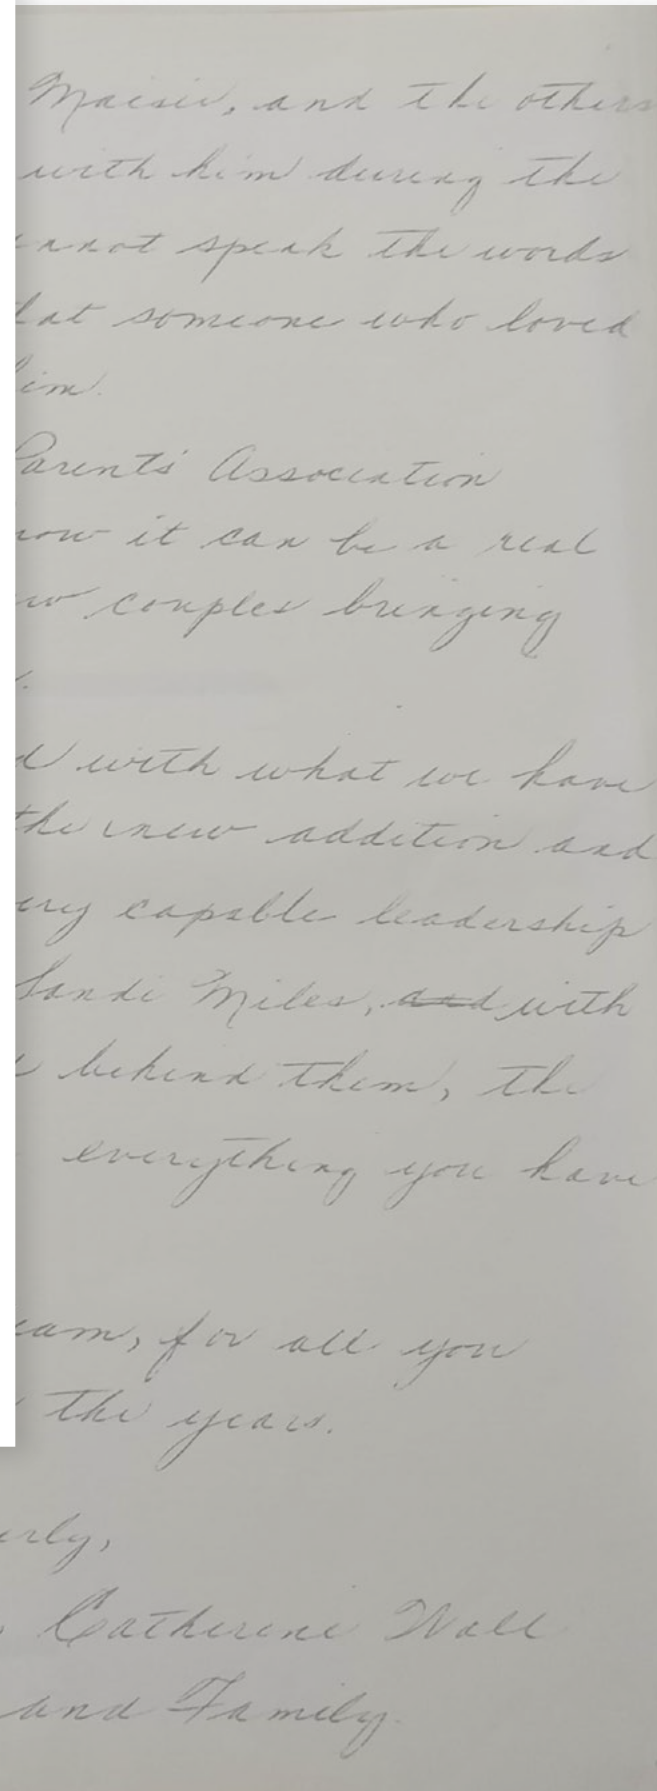 Maisie, and the others
with him during the
annot speak the words
hat someone who loved
im.
Parents' Association
now it can be a real
ew couples bringing
d with what we have
the new addition and
ery capable leadership
Sandi Miles, and with
behind them, the
everything you have
eam, for all you
the years.
erly,
Catherine Wall
and Family.